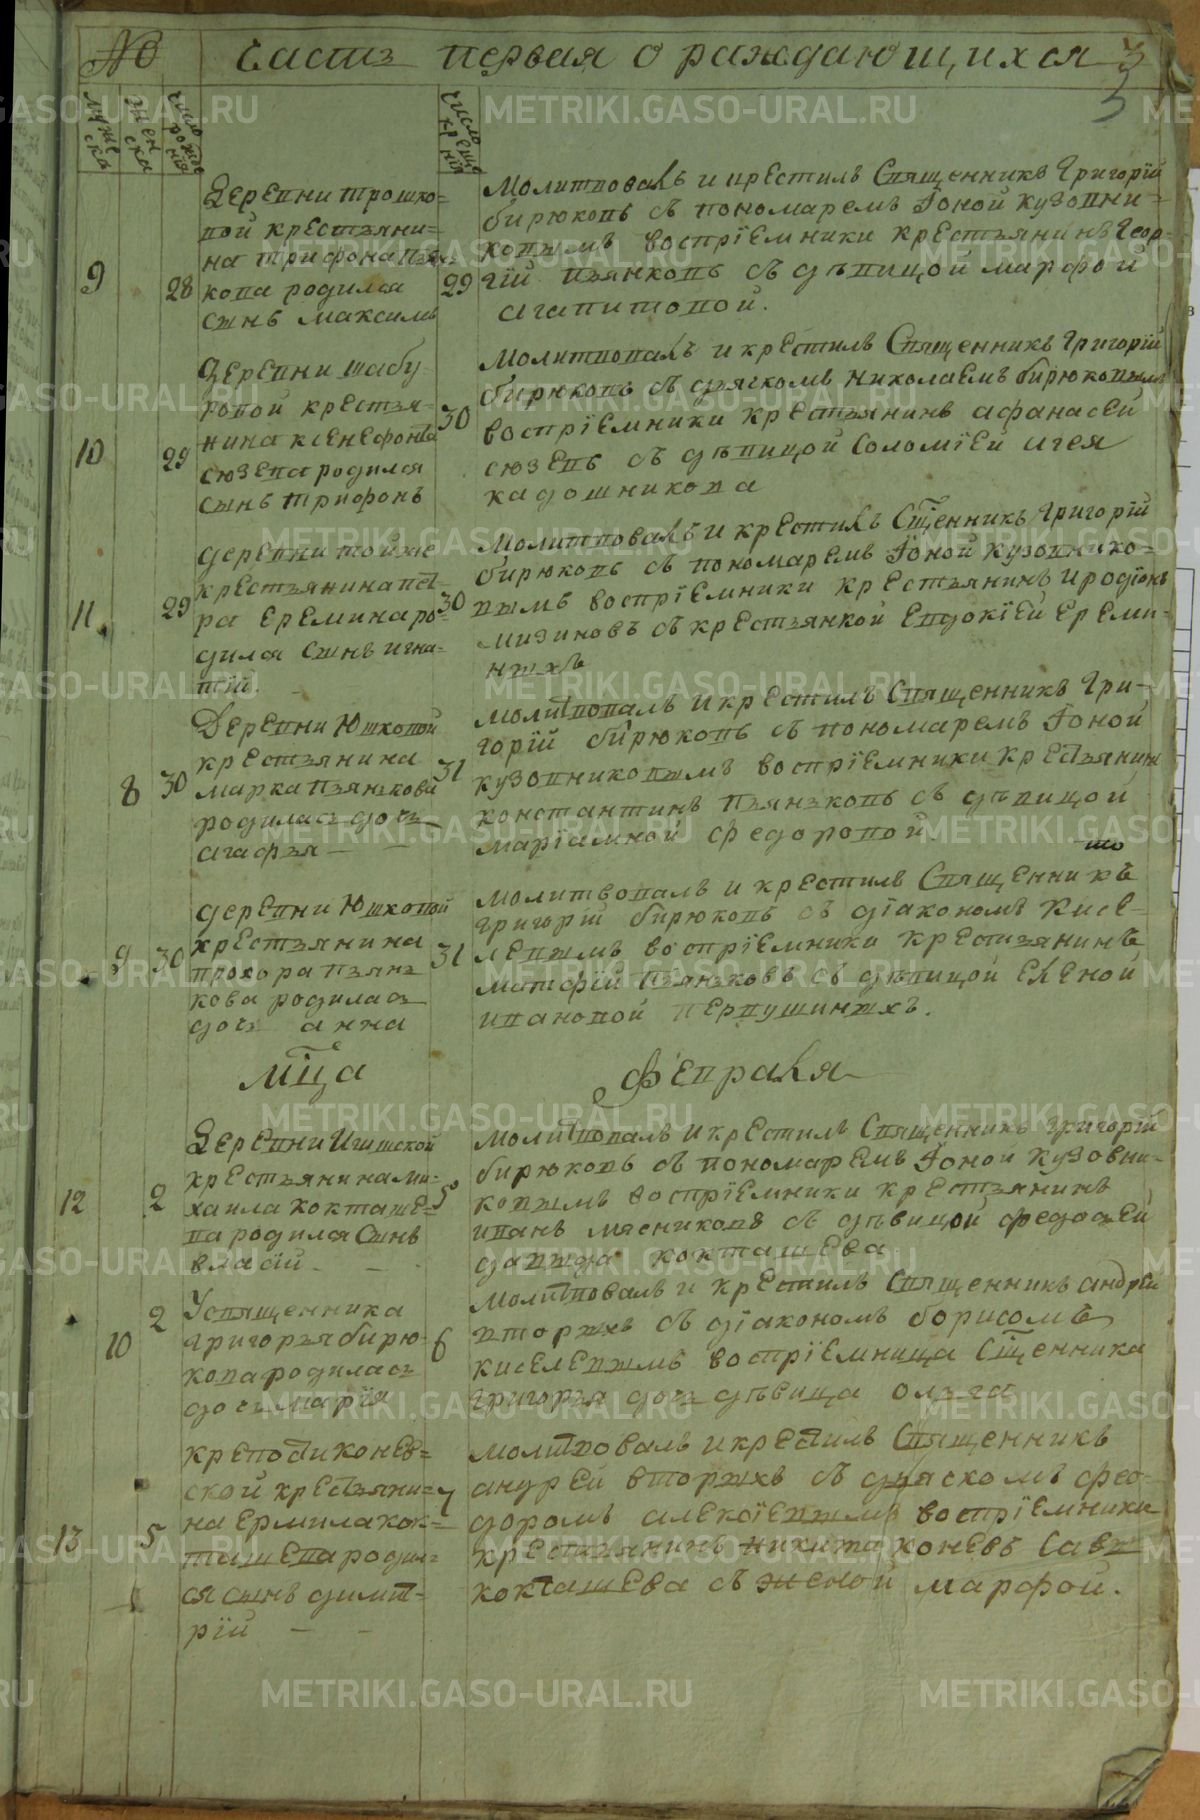 № Часть первая о раждающихся 3
3
мужеска
женска
число рождения
число крещения
Деревни трошко=
вой крестьяни=
на трифона пьян=
кова родился
сынъ максимъ
9 28 29
Молитвовалъ и крестилъ Священникъ Григорїй
бирюковъ съ пономаремъ Iоной кузовни=
ковымъ воспрїемники крестьянинъ Геор=
гїй пьянковъ съ дѣвицой марфой
агапитовой.
деревни шабу
ровой крестья=
нина ксенефонта
сюзева родился
сынъ трифонъ
10 29 30
Молитвовалъ и крестилъ Священникъ Григорїй
бирюковъ съ дячкомъ николаемъ бирюковымъ
воспрїемники крестьянинъ афанасей
сюзевъ съ дѣвицой Соломїей игея
кадошникова
деревни тойже
крестьянина пет=
ра еремина ро=
дился сынъ игна=
тїй.
11 29 30
Молитвовалъ и крестилъ Сщенникъ Григорїй
бирюковъ съ пономаремъ Iоной кузовнико=
вымъ воспрїемники крестьянинъ иродїонъ
мизиновъ съ крестьянкой евдокїей ереми=
ныхъ
Деревни Юшковой
крестьянина
марка пьянкова
родилась дочь
агафья — —
8 30 31
молитвовалъ и крестилъ Священникъ Гри=
горїй бирюковъ съ пономаремъ Iоной
кузовниковымъ воспрїемники крестьянинъ
константинъ пьянковъ съ дѣвицой
марїамной федоровой
деревни Юшковой
крестьянина
прохора пьян
кова родилась
дочь анна
9 30 31
молитвовалъ и крестилъ Священникъ
григорїй бирюковъ съ дїакономъ кисе=
левымъ воспрїемники крестьянинъ
матфїй пьянковъ съ дѣвицой еленой
ивановой первушиныхъ.
Мца Февраля
Деревни Игишской
крестьянина ми=
хаила кокташе=
ва родился сынъ
власїй — —
12 2 5
молитвовалъ и крестилъ Священникъ григорїй
бирюковъ съ пономаремъ Iоной кузовни=
ковымъ воспрїемники крестьянинъ
иванъ мясниковъ съ дѣвицой федосьей
давыда кокташева
У священника
григорья бирю=
кова родилась
дочь марїя
10 2 6
молитвовалъ и крестилъ Священникъ андрей
вторыхъ съ дїакономъ борисомъ
киселевымъ воспрїемница Сщенника
григорья дочь дѣвица ольга
крепости конев=
ской крестьяни=
на ермила кок=
ташева родил=
ся сынъ димит=
рїй — —
13 5 7
молитвовалъ и крестилъ Священникъ
андрей вторыхъ съ дячкомъ фео=
доромъ алексїевымъ воспрїемники
крестьянинъ никита коневъ Савы
кокташева съ женой марфой.